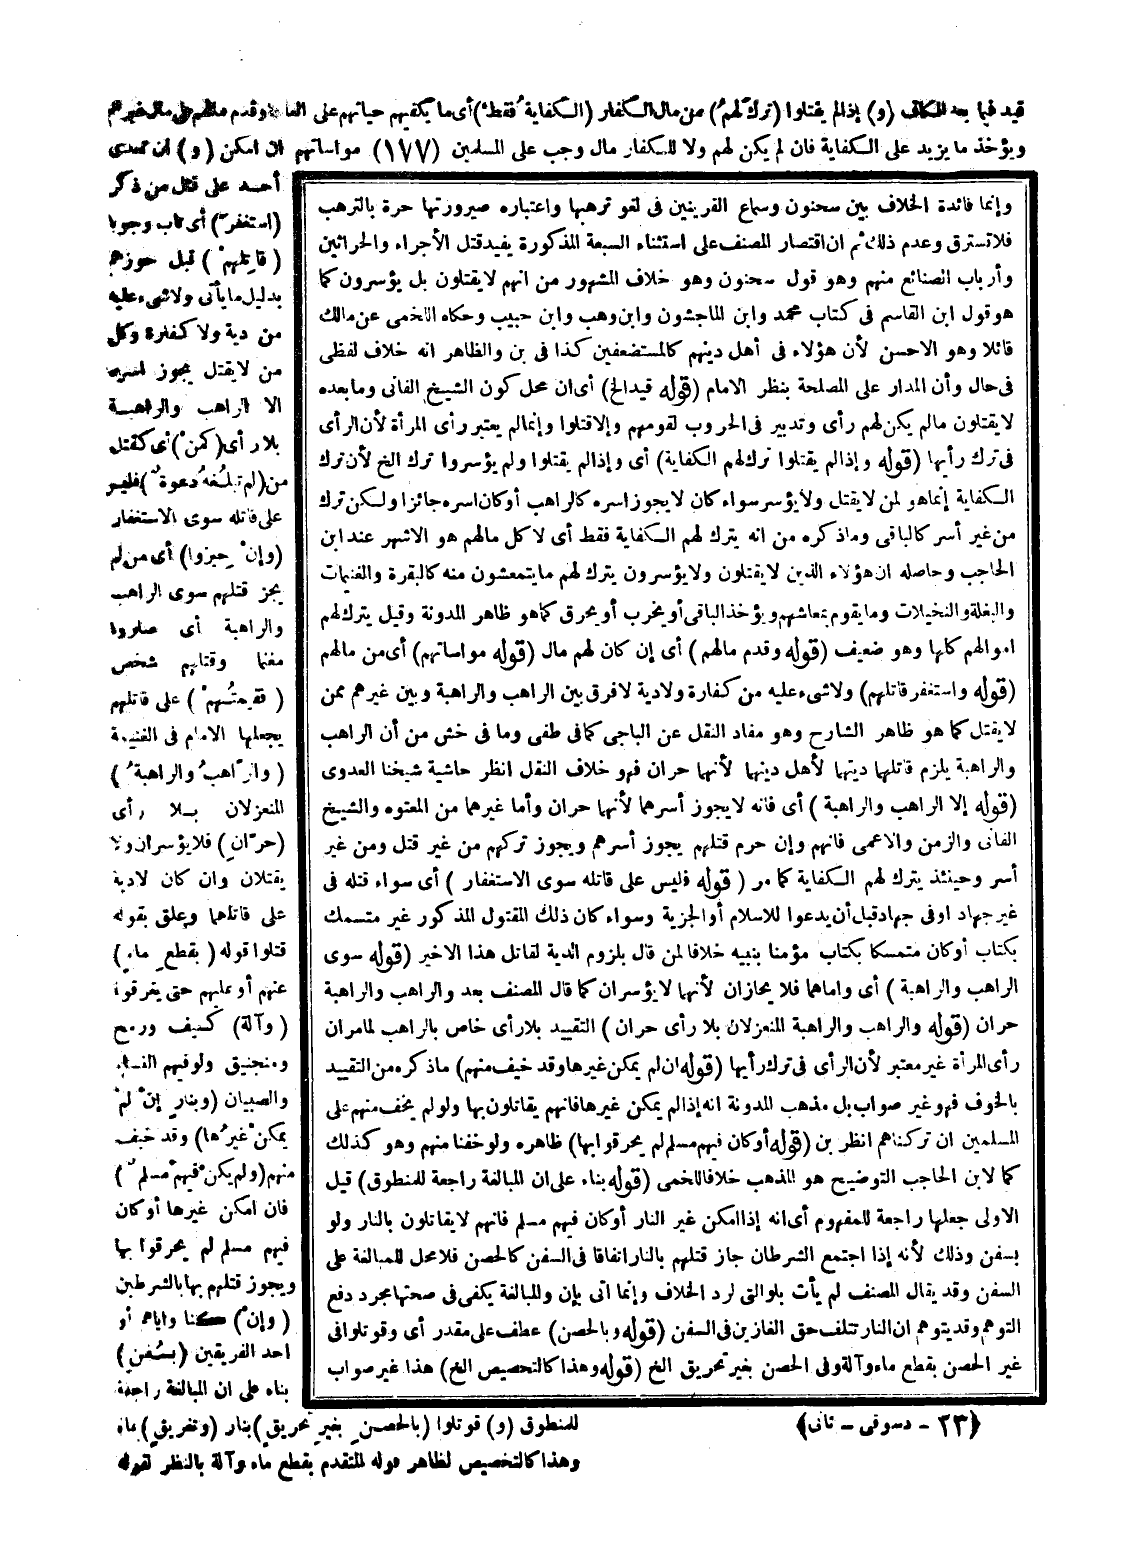 قيد فيما بعد الكاف (و) إذا لم يقتلوا (ترك لهم) من مال الكفار (الكفاية فقط) أى ما يكفيهم حياتهم على العادة وقدم مالهم على مال غيرهم
ويؤخذ ما يزيد على الكفاية فان لم يكن لهم ولا للكفار مال وجب على المسلمين (١٧٧) مواساتهم ان امكن (و) ان تعدى
أحد على قتل من ذكر
(استغفر) أى تاب وجوبا
(قاتلهم) قبل حوزهم
بدليل ما يأتى ولا شىء عليه
من دية ولا كفارة وكل
من لا يقتل يجوز اسره
الا الراهب والراهبة
بلا رأى (كمن) أى كقتل
من (لم تبلغه دعوة) فليس
على قاتله سوى الاستغفار
(وإن حيزوا) أى من لم
يجز قتلهم سوى الراهب
والراهبة أى صاروا
مغنما وقتلهم شخص
(فقيمتهم) على قاتلهم
يجعلها الامام فى الغنيمة
(والراهب والراهبة)
المنعزلان بلا رأى
(حران) فلا يؤسران ولا
يقتلان وان كان لادية
على قاتلهما وعلق بقوله
قتلوا قوله (بقطع ماء)
عنهم أو عليهم حتى يغرقوا
(وآلة) كسيف ورمح
ومنجنيق ولو فيهم النساء
والصبيان (وبنار إن لم
يمكن غيرها) وقد خيف
منهم (ولم يكن فيهم مسلم)
فان امكن غيرها أو كان
فيهم مسلم لم يحرقوا بها
ويجوز قتلهم بها بالشرطين
(وإن) كنا واياهم أو
احد الفريقين (بسفن)
بناء على ان المبالغة راجعة
للمنطوق (و) قوتلوا (بالحصن بغير تحريق) بنار (وتغريق) بماء
وهذا كالتخصيص لظاهر قوله المتقدم بقطع ماء وآلة بالنظر لقوله
وإنما فائدة الخلاف بين سحنون وسماع القرينين فى لغو ترهبها واعتباره صيرورتها حرة بالترهب
فلا تسترق وعدم ذلك ثم ان اقتصار المصنف على استثناء السبعة المذكورة يفيد قتل الأجراء والحراثين
وأرباب الصنائع منهم وهو قول سحنون وهو خلاف المشهور من انهم لا يقتلون بل يؤسرون كما
هو قول ابن القاسم فى كتاب محمد وابن الماجشون وابن وهب وابن حبيب وحكاه اللخمى عن مالك
قائلا وهو الاحسن لأن هؤلاء فى أهل دينهم كالمستضعفين كذا فى بن والظاهر انه خلاف لفظى
فى حال وأن المدار على المصلحة بنظر الامام (قوله قيد الخ) أى ان محل كون الشيخ الفانى وما بعده
لا يقتلون مالم يكن لهم رأى وتدبير فى الحروب لقومهم وإلا قتلوا وإنما لم يعتبر رأى المرأة لأن الرأى
فى ترك رأيها (قوله وإذا لم يقتلوا ترك لهم الكفاية) أى وإذا لم يقتلوا ولم يؤسروا ترك الخ لأن ترك
الكفاية إنما هو لمن لا يقتل ولا يؤسر سواء كان لا يجوز اسره كالراهب أو كان اسره جائزا ولكن ترك
من غير أسر كالباقى وما ذكره من انه يترك لهم الكفاية فقط أى لا كل مالهم هو الاشهر عند ابن
الحاجب وحاصله ان هؤلاء الذين لا يقتلون ولا يؤسرون يترك لهم ما يتمعشون منه كالبقرة والغنيمات
والبغلة والنخيلات وما يقوم بمعاشهم ويؤخذ الباقى أو يخرب أو يحرق كما هو ظاهر المدونة وقيل يترك لهم
اموالهم كلها وهو ضعيف (قوله وقدم مالهم) أى إن كان لهم مال (قوله مواساتهم) أى من مالهم
(قوله واستغفر قاتلهم) ولا شىء عليه من كفارة ولا دية لا فرق بين الراهب والراهبة وبين غيرهم ممن
لا يقتل كما هو ظاهر الشارح وهو مفاد النقل عن الباجى كما فى طفى وما فى خش من أن الراهب
والراهبة يلزم قاتلهما ديتهما لأهل دينهما لأنهما حران فهو خلاف النقل انظر حاشية شيخنا العدوى
(قوله إلا الراهب والراهبة) أى فانه لا يجوز أسرهما لأنهما حران وأما غيرهما من المعتوه والشيخ
الفانى والزمن والاعمى فانهم وإن حرم قتلهم يجوز أسرهم ويجوز تركهم من غير قتل ومن غير
أسر وحينئذ يترك لهم الكفاية كما مر (قوله فليس على قاتله سوى الاستغفار) أى سواء قتله فى
غير جهاد اوفى جهاد قبل أن يدعوا للاسلام أو الجزية وسواء كان ذلك المقتول المذكور غير متمسك
بكتاب أو كان متمسكا بكتاب مؤمنا بنبيه خلافا لمن قال بلزوم الدية لقاتل هذا الاخير (قوله سوى
الراهب والراهبة) أى واماهما فلا يحازان لأنهما لا يؤسران كما قال المصنف بعد والراهب والراهبة
حران (قوله والراهب والراهبة المنعزلان بلا رأى حران) التقييد بلا رأى خاص بالراهب لما مر ان
رأى المرأة غير معتبر لأن الرأى فى ترك رأيها (قوله ان لم يمكن غيرها وقد خيف منهم) ما ذكره من التقييد
بالخوف فهو غير صواب بل مذهب المدونة انه إذا لم يمكن غيرها فانهم يقاتلون بها ولو لم يخف منهم على
المسلمين ان تركناهم انظر بن (قوله أو كان فيهم مسلم لم يحرقوا بها) ظاهره ولو خفنا منهم وهو كذلك
كما لابن الحاجب التوضيح هو المذهب خلافا للخمى (قوله بناء على ان المبالغة راجعة للمنطوق) قيل
الاولى جعلها راجعة للمفهوم أى انه إذا امكن غير النار أو كان فيهم مسلم فانهم لا يقاتلون بالنار ولو
بسفن وذلك لأنه إذا اجتمع الشرطان جاز قتلهم بالنار اتفاقا فى السفن كالحصن فلا محل للمبالغة على
السفن وقد يقال المصنف لم يأت بلو التى لرد الخلاف وإنما اتى بإن والمبالغة يكفى فى صحتها مجرد دفع
التوهم وقد يتوهم ان النار تتلف حق الغازين فى السفن (قوله وبالحصن) عطف على مقدر أى وقوتلوا فى
غير الحصن بقطع ماء وآلة وفى الحصن بغير تحريق الخ (قوله وهذا كالتخصيص الخ) هذا غير صواب
(٢٣ - دسوقى - ثانى)